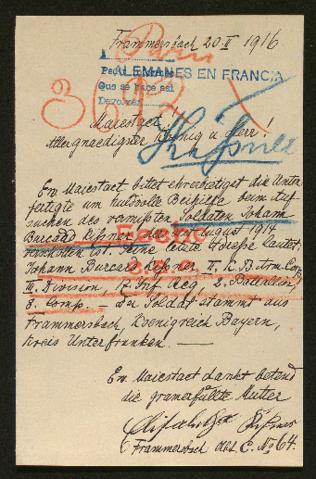 Frammersbach 20 II 1916
Paris
ALEMANES EN FRANCIA
Pedir
Que se hace así
Devolver
Majestaet!
Allergnaedigster Koenig u. Herr!
Ew. Majestaet bittet ehrerbietigst die Unter
fertigte um huldvolle Beihilfe beim Auf
suchen des vermißten Soldaten Johann
Burcard Kißner, der seit August 1914
verschollen ist. Seine letzte Adresse lautet:
Johann Burcard Kißner II. K. B. Arm. Corps
III. Division, 17. Inf. Reg, 2. Bataillon,
8. Comp. — Der Soldat stammt aus
Frammersbach, Koenigreich Bayern,
Kreis Unterfranken. —
Ew. Majestaet dankt betend
die gramerfüllte Mutter
Elisabetha Kißner
Frammersbach Hs. No 64.